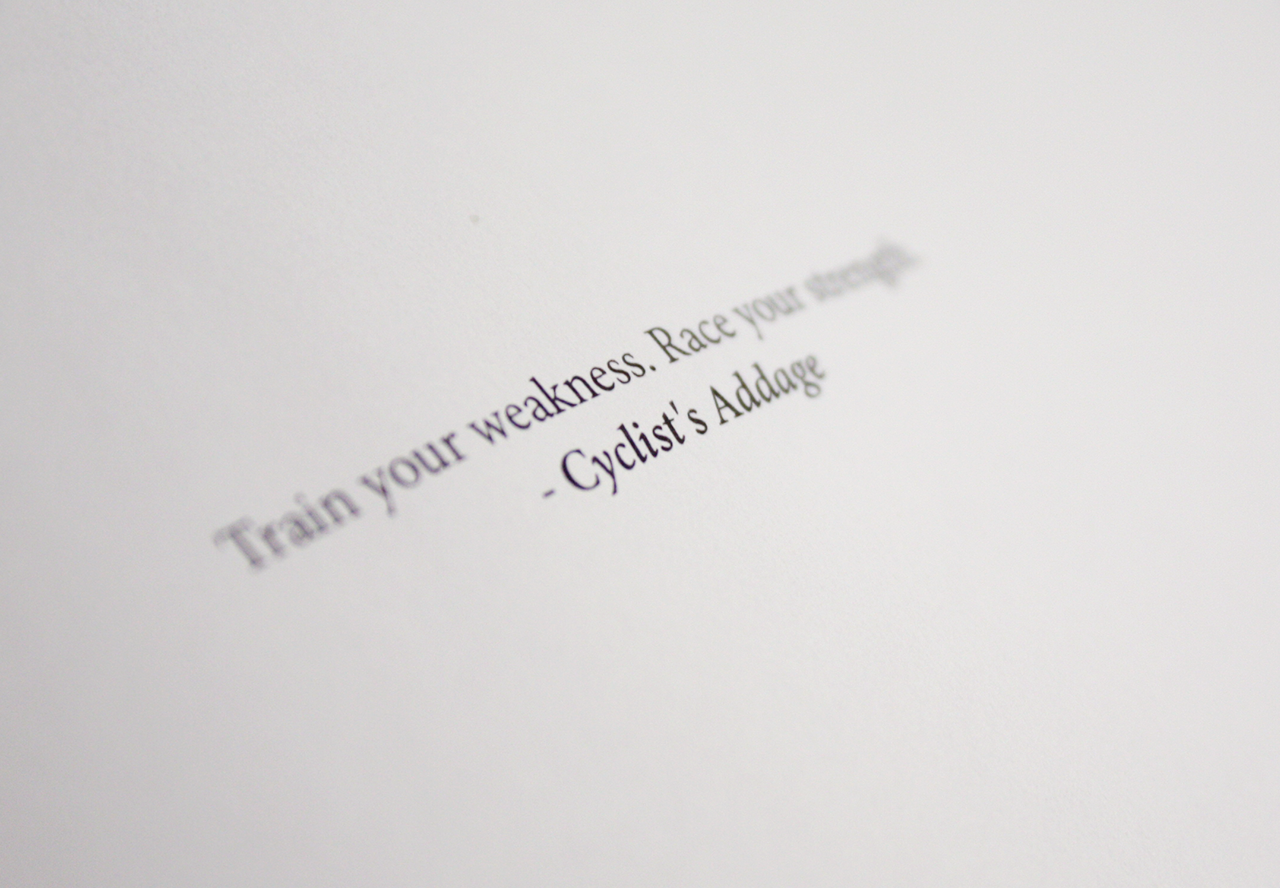 Train your weakness. Race your strength.
- Cyclist's Addage